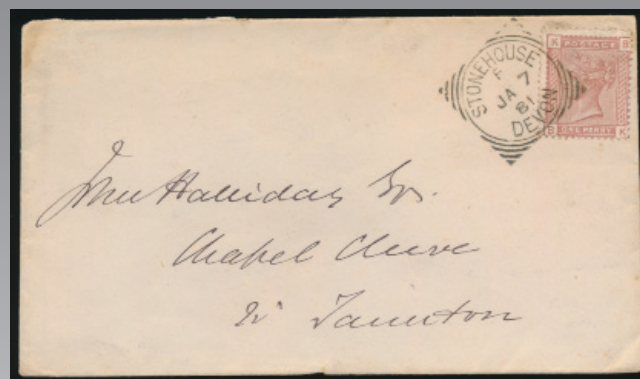 STONEHOUSE
F
JA 7
81
DEVON
K POSTAGE B
B ONE PENNY K
John Halliday Esq.
Chapel Cleeve
Nr Taunton